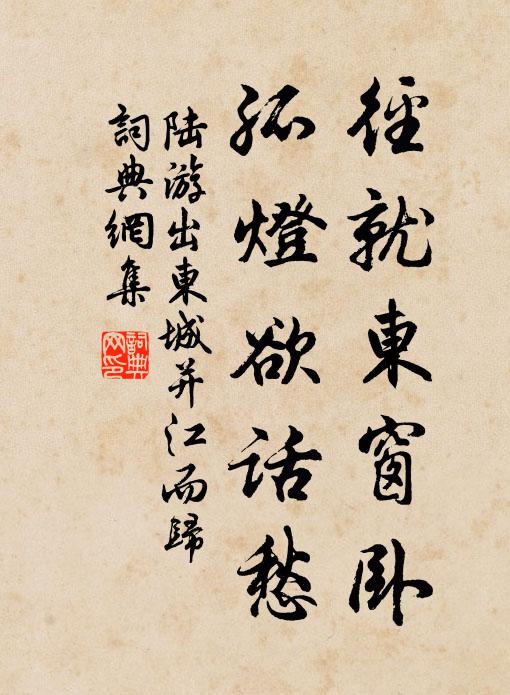 徑就東窗卧
孤燈欲話愁
陆游出東城并江而歸
詞典網集
詞典网印